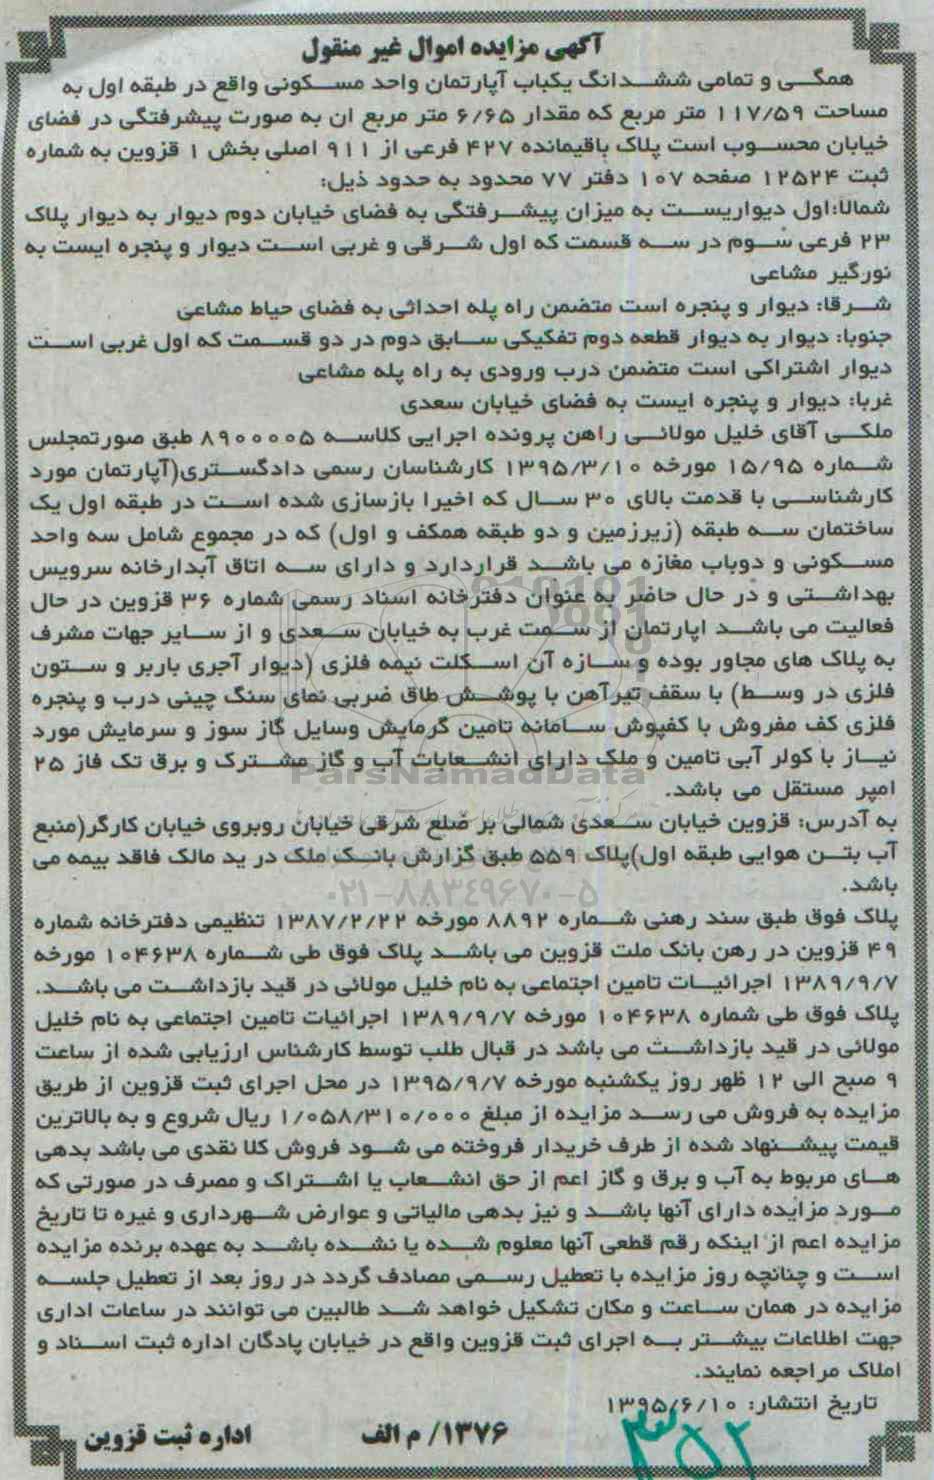 آگهی مزایده اموال غیر منقول
همگی و تمامی ششدانگ یکباب آپارتمان واحد مسکونی واقع در طبقه اول به
مساحت ۱۱۷/۵۹ متر مربع که مقدار ۶/۶۵ متر مربع ان به صورت پیشرفتگی در فضای
خیابان محسوب است پلاک باقیمانده ۴۲۷ فرعی از ۹۱۱ اصلی بخش ۱ قزوین به شماره
ثبت ۱۲۵۲۴ صفحه ۱۰۷ دفتر ۷۷ محدود به حدود ذیل:
شمالا:اول دیواریست به میزان پیشرفتگی به فضای خیابان دوم دیوار به دیوار پلاک
۲۳ فرعی سوم در سه قسمت که اول شرقی و غربی است دیوار و پنجره ایست به
نورگیر مشاعی
شرقا: دیوار و پنجره است متضمن راه پله احداثی به فضای حیاط مشاعی
جنوبا: دیوار به دیوار قطعه دوم تفکیکی سابق دوم در دو قسمت که اول غربی است
دیوار اشتراکی است متضمن درب ورودی به راه پله مشاعی
غربا: دیوار و پنجره ایست به فضای خیابان سعدی
ملکی آقای خلیل مولائی راهن پرونده اجرایی کلاسه ۸۹۰۰۰۰۵ طبق صورتمجلس
شماره ۱۵/۹۵ مورخه ۱۳۹۵/۳/۱۰ کارشناسان رسمی دادگستری(آپارتمان مورد
کارشناسی با قدمت بالای ۳۰ سال که اخیرا بازسازی شده است در طبقه اول یک
ساختمان سه طبقه (زیرزمین و دو طبقه همکف و اول) که در مجموع شامل سه واحد
مسکونی و دوباب مغازه می باشد قراردارد و دارای سه اتاق آبدارخانه سرویس
بهداشتی و در حال حاضر به عنوان دفترخانه اسناد رسمی شماره ۳۶ قزوین در حال
فعالیت می باشد اپارتمان از سمت غرب به خیابان سعدی و از سایر جهات مشرف
به پلاک های مجاور بوده و سازه آن اسکلت نیمه فلزی (دیوار آجری باربر و ستون
فلزی در وسط) با سقف تیرآهن با پوشش طاق ضربی نمای سنگ چینی درب و پنجره
فلزی کف مفروش با کفپوش سامانه تامین گرمایش وسایل گاز سوز و سرمایش مورد
نیاز با کولر آبی تامین و ملک دارای انشعابات آب و گاز مشترک و برق تک فاز ۲۵
امپر مستقل می باشد.
ParsNamadData
به آدرس: قزوین خیابان سعدی شمالی بر ضلع شرقی خیابان روبروی خیابان کارگر(منبع
آب بتن هوایی طبقه اول)پلاک ۵۵۹ طبق گزارش بانک ملک در ید مالک فاقد بیمه می
باشد.
۰۲۱-۸۸۳۴۹۶۷۰-۵
پلاک فوق طبق سند رهنی شماره ۸۸۹۲ مورخه ۱۳۸۷/۲/۲۲ تنظیمی دفترخانه شماره
۴۹ قزوین در رهن بانک ملت قزوین می باشد پلاک فوق طی شماره ۱۰۴۶۳۸ مورخه
۱۳۸۹/۹/۷ اجرائیات تامین اجتماعی به نام خلیل مولائی در قید بازداشت می باشد.
پلاک فوق طی شماره ۱۰۴۶۳۸ مورخه ۱۳۸۹/۹/۷ اجرائیات تامین اجتماعی به نام خلیل
مولائی در قید بازداشت می باشد در قبال طلب توسط کارشناس ارزیابی شده از ساعت
۹ صبح الی ۱۲ ظهر روز یکشنبه مورخه ۱۳۹۵/۹/۷ در محل اجرای ثبت قزوین از طریق
مزایده به فروش می رسد مزایده از مبلغ ۱/۰۵۸/۳۱۰/۰۰۰ ریال شروع و به بالاترین
قیمت پیشنهاد شده از طرف خریدار فروخته می شود فروش کلا نقدی می باشد بدهی
های مربوط به آب و برق و گاز اعم از حق انشعاب یا اشتراک و مصرف در صورتی که
مورد مزایده دارای آنها باشد و نیز بدهی مالیاتی و عوارض شهرداری و غیره تا تاریخ
مزایده اعم از اینکه رقم قطعی آنها معلوم شده یا نشده باشد به عهده برنده مزایده
است و چنانچه روز مزایده با تعطیل رسمی مصادف گردد در روز بعد از تعطیل جلسه
مزایده در همان ساعت و مکان تشکیل خواهد شد طالبین می توانند در ساعات اداری
جهت اطلاعات بیشتر به اجرای ثبت قزوین واقع در خیابان پادگان اداره ثبت اسناد و
املاک مراجعه نمایند.
تاریخ انتشار: ۱۳۹۵/۶/۱۰
۱۳۷۶/ م الف
اداره ثبت قزوین